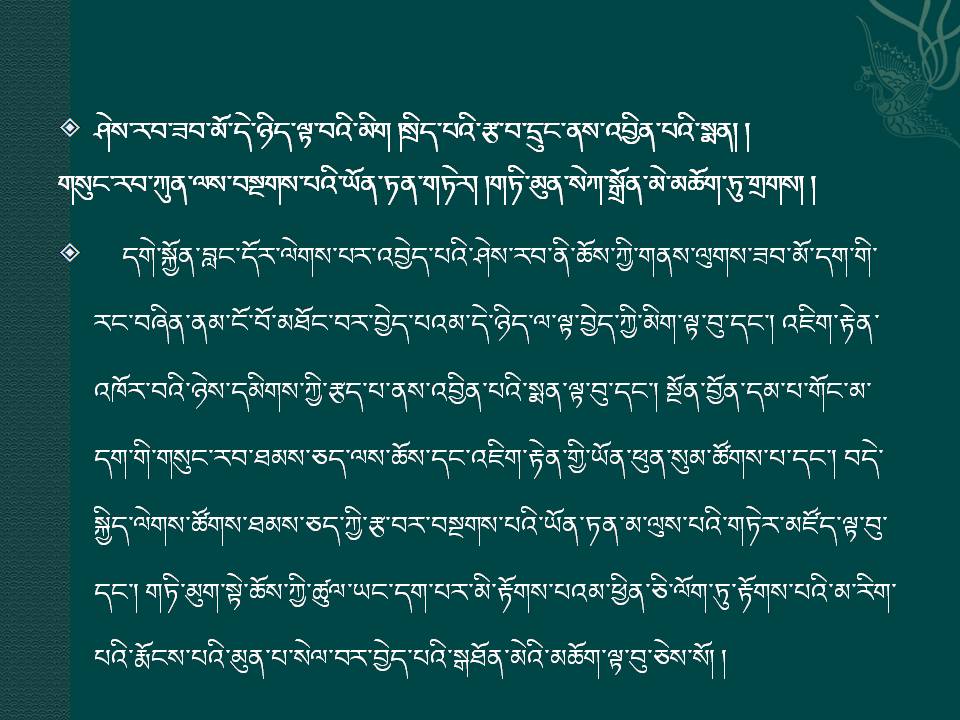 ཤེས་རབ་ཟབ་མོ་དེ་ཉིད་ལྟ་བའི་མིག །སྲིད་པའི་རྩ་བ་དྲུང་ནས་འབྱིན་པའི་སྨན། །
གསུང་རབ་ཀུན་ལས་བསྔགས་པའི་ཡོན་ཏན་གཏེར། །གཏི་མུན་སེཀ་སྒྲོན་མེ་མཆོག་ཏུ་གྲགས། །
དགེ་སྐྱོན་བླང་དོར་ལེགས་པར་འབྱེད་པའི་ཤེས་རབ་ནི་ཆོས་ཀྱི་གནས་ལུགས་ཟབ་མོ་དག་གི་
རང་བཞིན་ནམ་ངོ་བོ་མཐོང་བར་བྱེད་པའམ་དེ་ཉིད་ལ་ལྟ་བྱེད་ཀྱི་མིག་ལྟ་བུ་དང་། འཇིག་རྟེན་
འཁོར་བའི་ཉེས་དམིགས་ཀྱི་རྩད་པ་ནས་འབྱིན་པའི་སྨན་ལྟ་བུ་དང་། སྔོན་བྱོན་དམ་པ་གོང་མ་
དག་གི་གསུང་རབ་ཐམས་ཅད་ལས་ཆོས་དང་འཇིག་རྟེན་གྱི་ཡོན་ཕུན་སུམ་ཚོགས་པ་དང་། བདེ་
སྐྱིད་ལེགས་ཚོགས་ཐམས་ཅད་ཀྱི་རྩ་བར་བསྔགས་པའི་ཡོན་ཏན་མ་ལུས་པའི་གཏེར་མཛོད་ལྟ་བུ་
དང་། གཏི་མུག་སྟེ་ཆོས་ཀྱི་ཚུལ་ཡང་དག་པར་མི་རྟོགས་པའམ་ཕྱིན་ཅི་ལོག་ཏུ་རྟོགས་པའི་མ་རིག་
པའི་རྨོངས་པའི་མུན་པ་སེལ་བར་བྱེད་པའི་སྒཐོན་མེའི་མཆོག་ལྟ་བུ་ཅེས་སོ། །